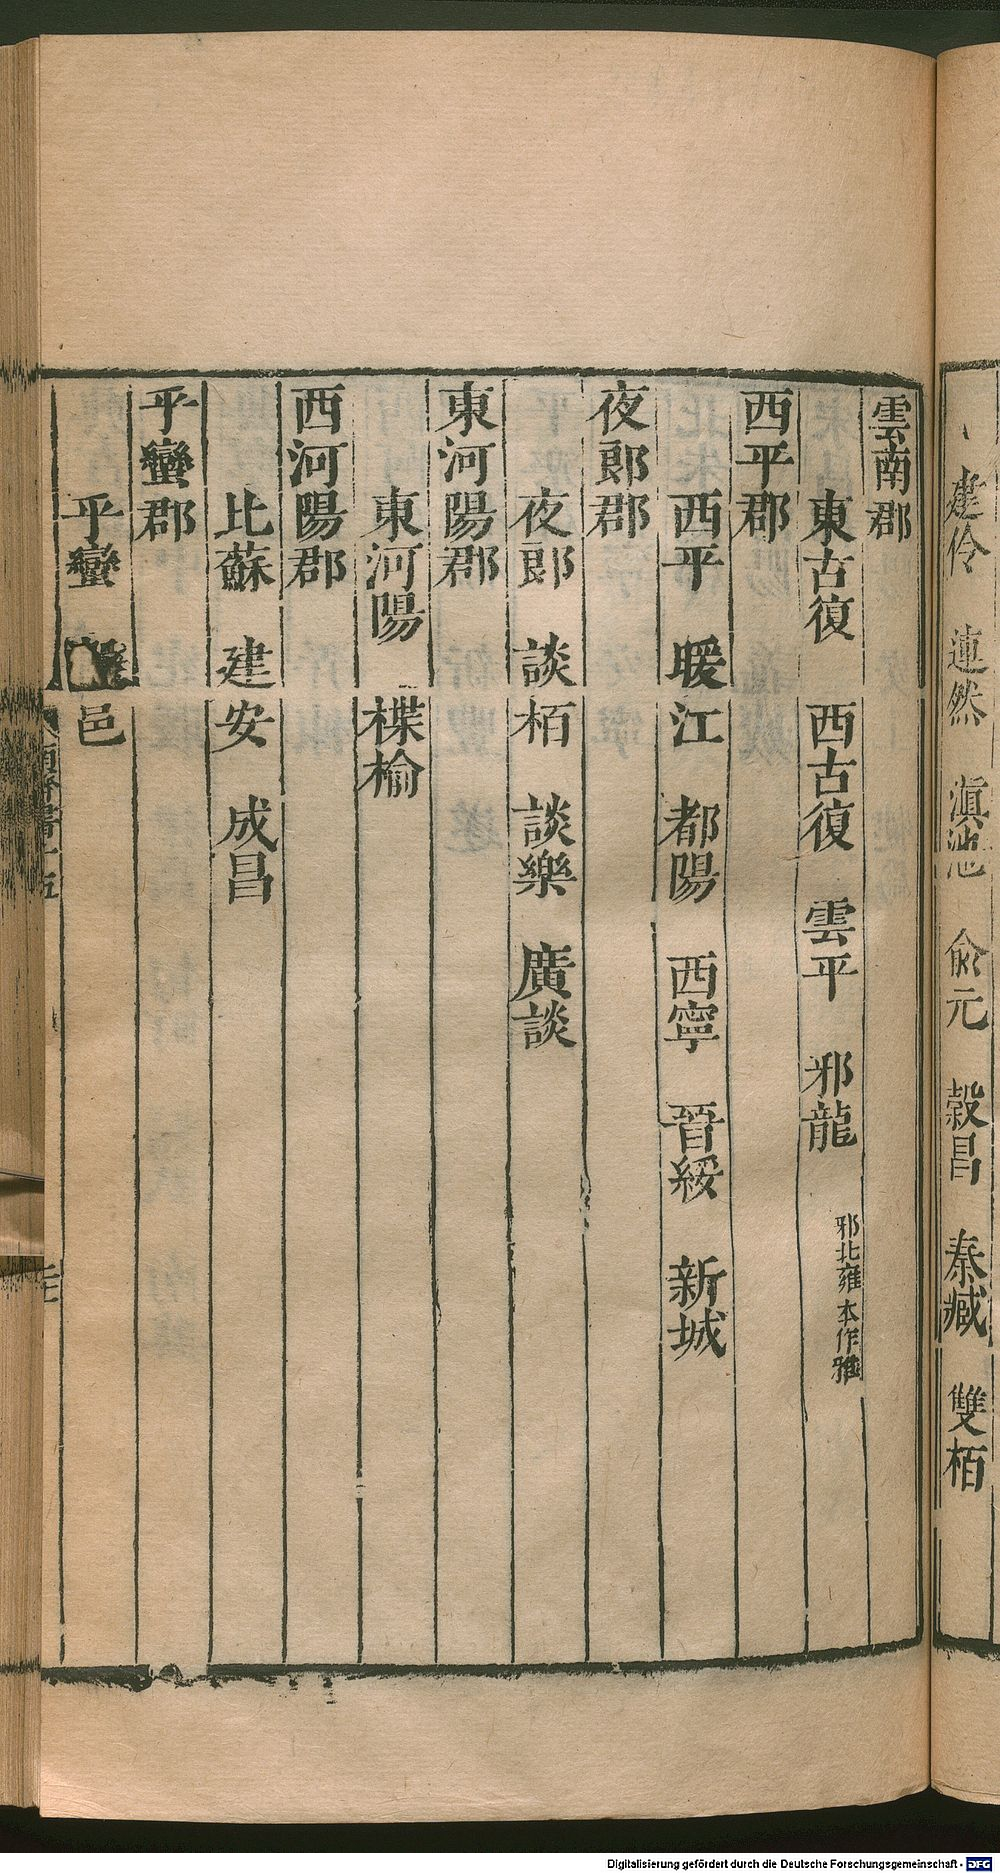 建伶 連然 滇池 俞元 穀昌 秦臧 雙栢
雲南郡
東古復 西古復 雲平 邪龍 邪北雍本作雅
西平郡
西平 暖江 都陽 西寧 晉綏 新城
夜郎郡
夜郎 談栢 談樂 廣談
東河陽郡
東河陽 楪榆
西河陽郡
比蘇 建安 成昌
平蠻郡
平蠻 邑
南齊書十五
Digitalisierung gefördert durch die Deutsche Forschungsgemeinschaft - DFG